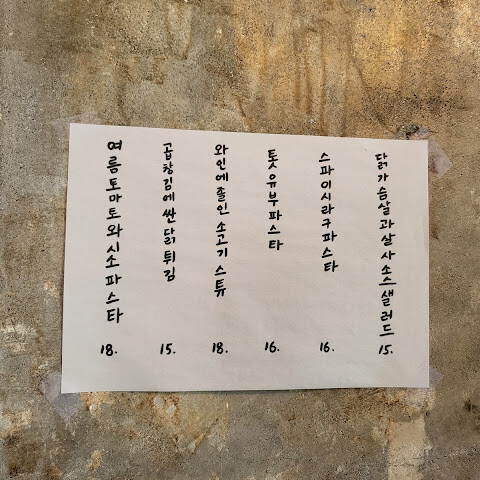 여름토마토와시소파스타
18.
곱창김에싼닭튀김
15.
와인에졸인소고기스튜
18.
톳유부파스타
16.
스파이시라구파스타
16.
닭가슴살과살사소스샐러드
15.